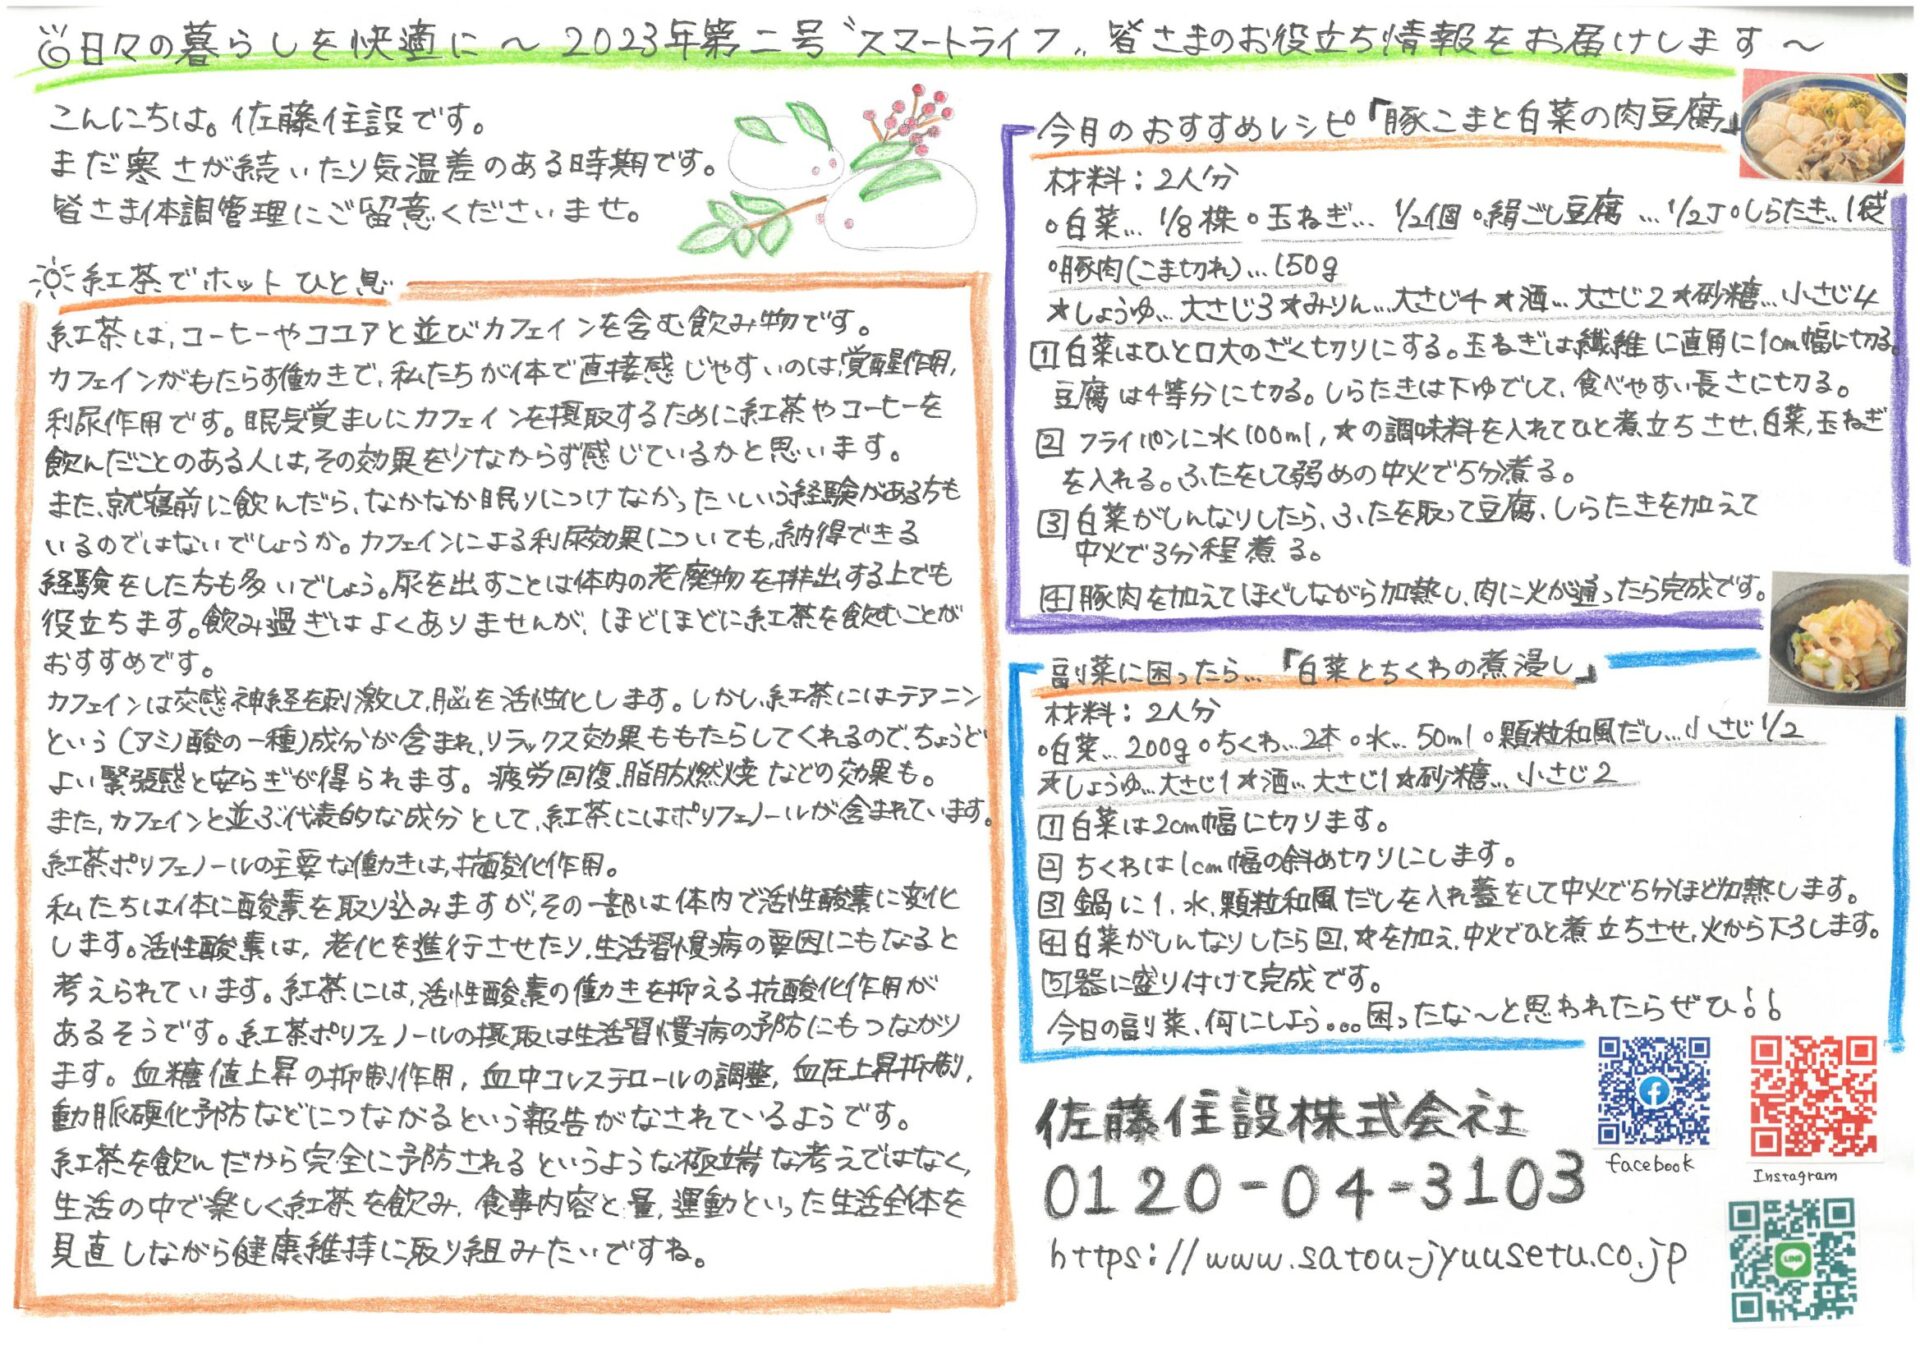 日々の暮らしを快適に～2023年第二号〝スマートライフ〟皆さまのお役立ち情報をお届けします～
こんにちは。佐藤住設です。
まだ寒さが続いたり気温差のある時期です。
皆さま体調管理にご留意くださいませ。
紅茶でホットひと息
紅茶は、コーヒーやココアと並びカフェインを含む飲み物です。
カフェインがもたらす働きで、私たちが体で直接感じやすいのは、覚醒作用、
利尿作用です。眠気覚ましにカフェインを摂取するために紅茶やコーヒーを
飲んだことのある人は、その効果を少なからず感じているかと思います。
また、就寝前に飲んだら、なかなか眠りにつけなかったという経験がある方も
いるのではないでしょうか。カフェインによる利尿効果についても、納得できる
経験をした方も多いでしょう。尿を出すことは体内の老廃物を排出する上でも
役立ちます。飲み過ぎはよくありませんが、ほどほどに紅茶を飲むことが
おすすめです。
カフェインは交感神経を刺激して、脳を活性化します。しかし、紅茶にはテアニン
という(アミノ酸の一種)成分が含まれ、リラックス効果ももたらしてくれるので、ちょうど
よい緊張感と安らぎが得られます。疲労回復、脂肪燃焼などの効果も。
また、カフェインと並ぶ代表的な成分として、紅茶にはポリフェノールが含まれています。
紅茶ポリフェノールの主要な働きは、抗酸化作用。
私たちは体に酸素を取り込みますが、その一部は体内で活性酸素に変化
します。活性酸素は、老化を進行させたり、生活習慣病の要因にもなると
考えられています。紅茶には、活性酸素の働きを抑える抗酸化作用が
あるそうです。紅茶ポリフェノールの摂取は生活習慣病の予防にもつながり
ます。血糖値上昇の抑制作用、血中コレステロールの調整、血圧上昇抑制、
動脈硬化予防などにつながるという報告がなされているようです。
紅茶を飲んだから完全に予防されるというような極端な考えではなく、
生活の中で楽しく紅茶を飲み、食事内容と量、運動といった生活全体を
見直しながら健康維持に取り組みたいですね。
今月のおすすめレシピ「豚こまと白菜の肉豆腐」
材料：2人分
○白菜…1/8株○玉ねぎ…1/2個○絹ごし豆腐…1/2丁○しらたき…1袋
○豚肉(こま切れ)…150g
★しょうゆ…大さじ3★みりん…大さじ4★酒…大さじ2★砂糖…小さじ4
1 白菜はひと口大のざく切りにする。玉ねぎは繊維に直角に1cm幅に切る。
豆腐は4等分に切る。しらたきは下ゆでして、食べやすい長さに切る。
2 フライパンに水100ml、★の調味料を入れてひと煮立ちさせ、白菜、玉ねぎ
を入れる。ふたをして弱めの中火で5分煮る。
3 白菜がしんなりしたら、ふたを取って豆腐、しらたきを加えて
中火で3分程煮る。
4 豚肉を加えてほぐしながら加熱し、肉に火が通ったら完成です。
副菜に困ったら…「白菜とちくわの煮浸し」
材料：2人分
○白菜…200g○ちくわ…2本○水…50ml○顆粒和風だし…小さじ1/2
★しょうゆ…大さじ1★酒…大さじ1★砂糖…小さじ2
1 白菜は2cm幅に切ります。
2 ちくわは1cm幅の斜め切りにします。
3 鍋に1、水、顆粒和風だしを入れ蓋をして中火で5分ほど加熱します。
4 白菜がしんなりしたら2、★を加え、中火でひと煮立ちさせ、火から下ろします。
5 器に盛り付けて完成です。
今日の副菜、何にしよう…困ったな～と思われたらぜひ!!
佐藤住設株式会社
0120-04-3103
https://www.satou-jyuusetu.co.jp
facebook
Instagram
LINE